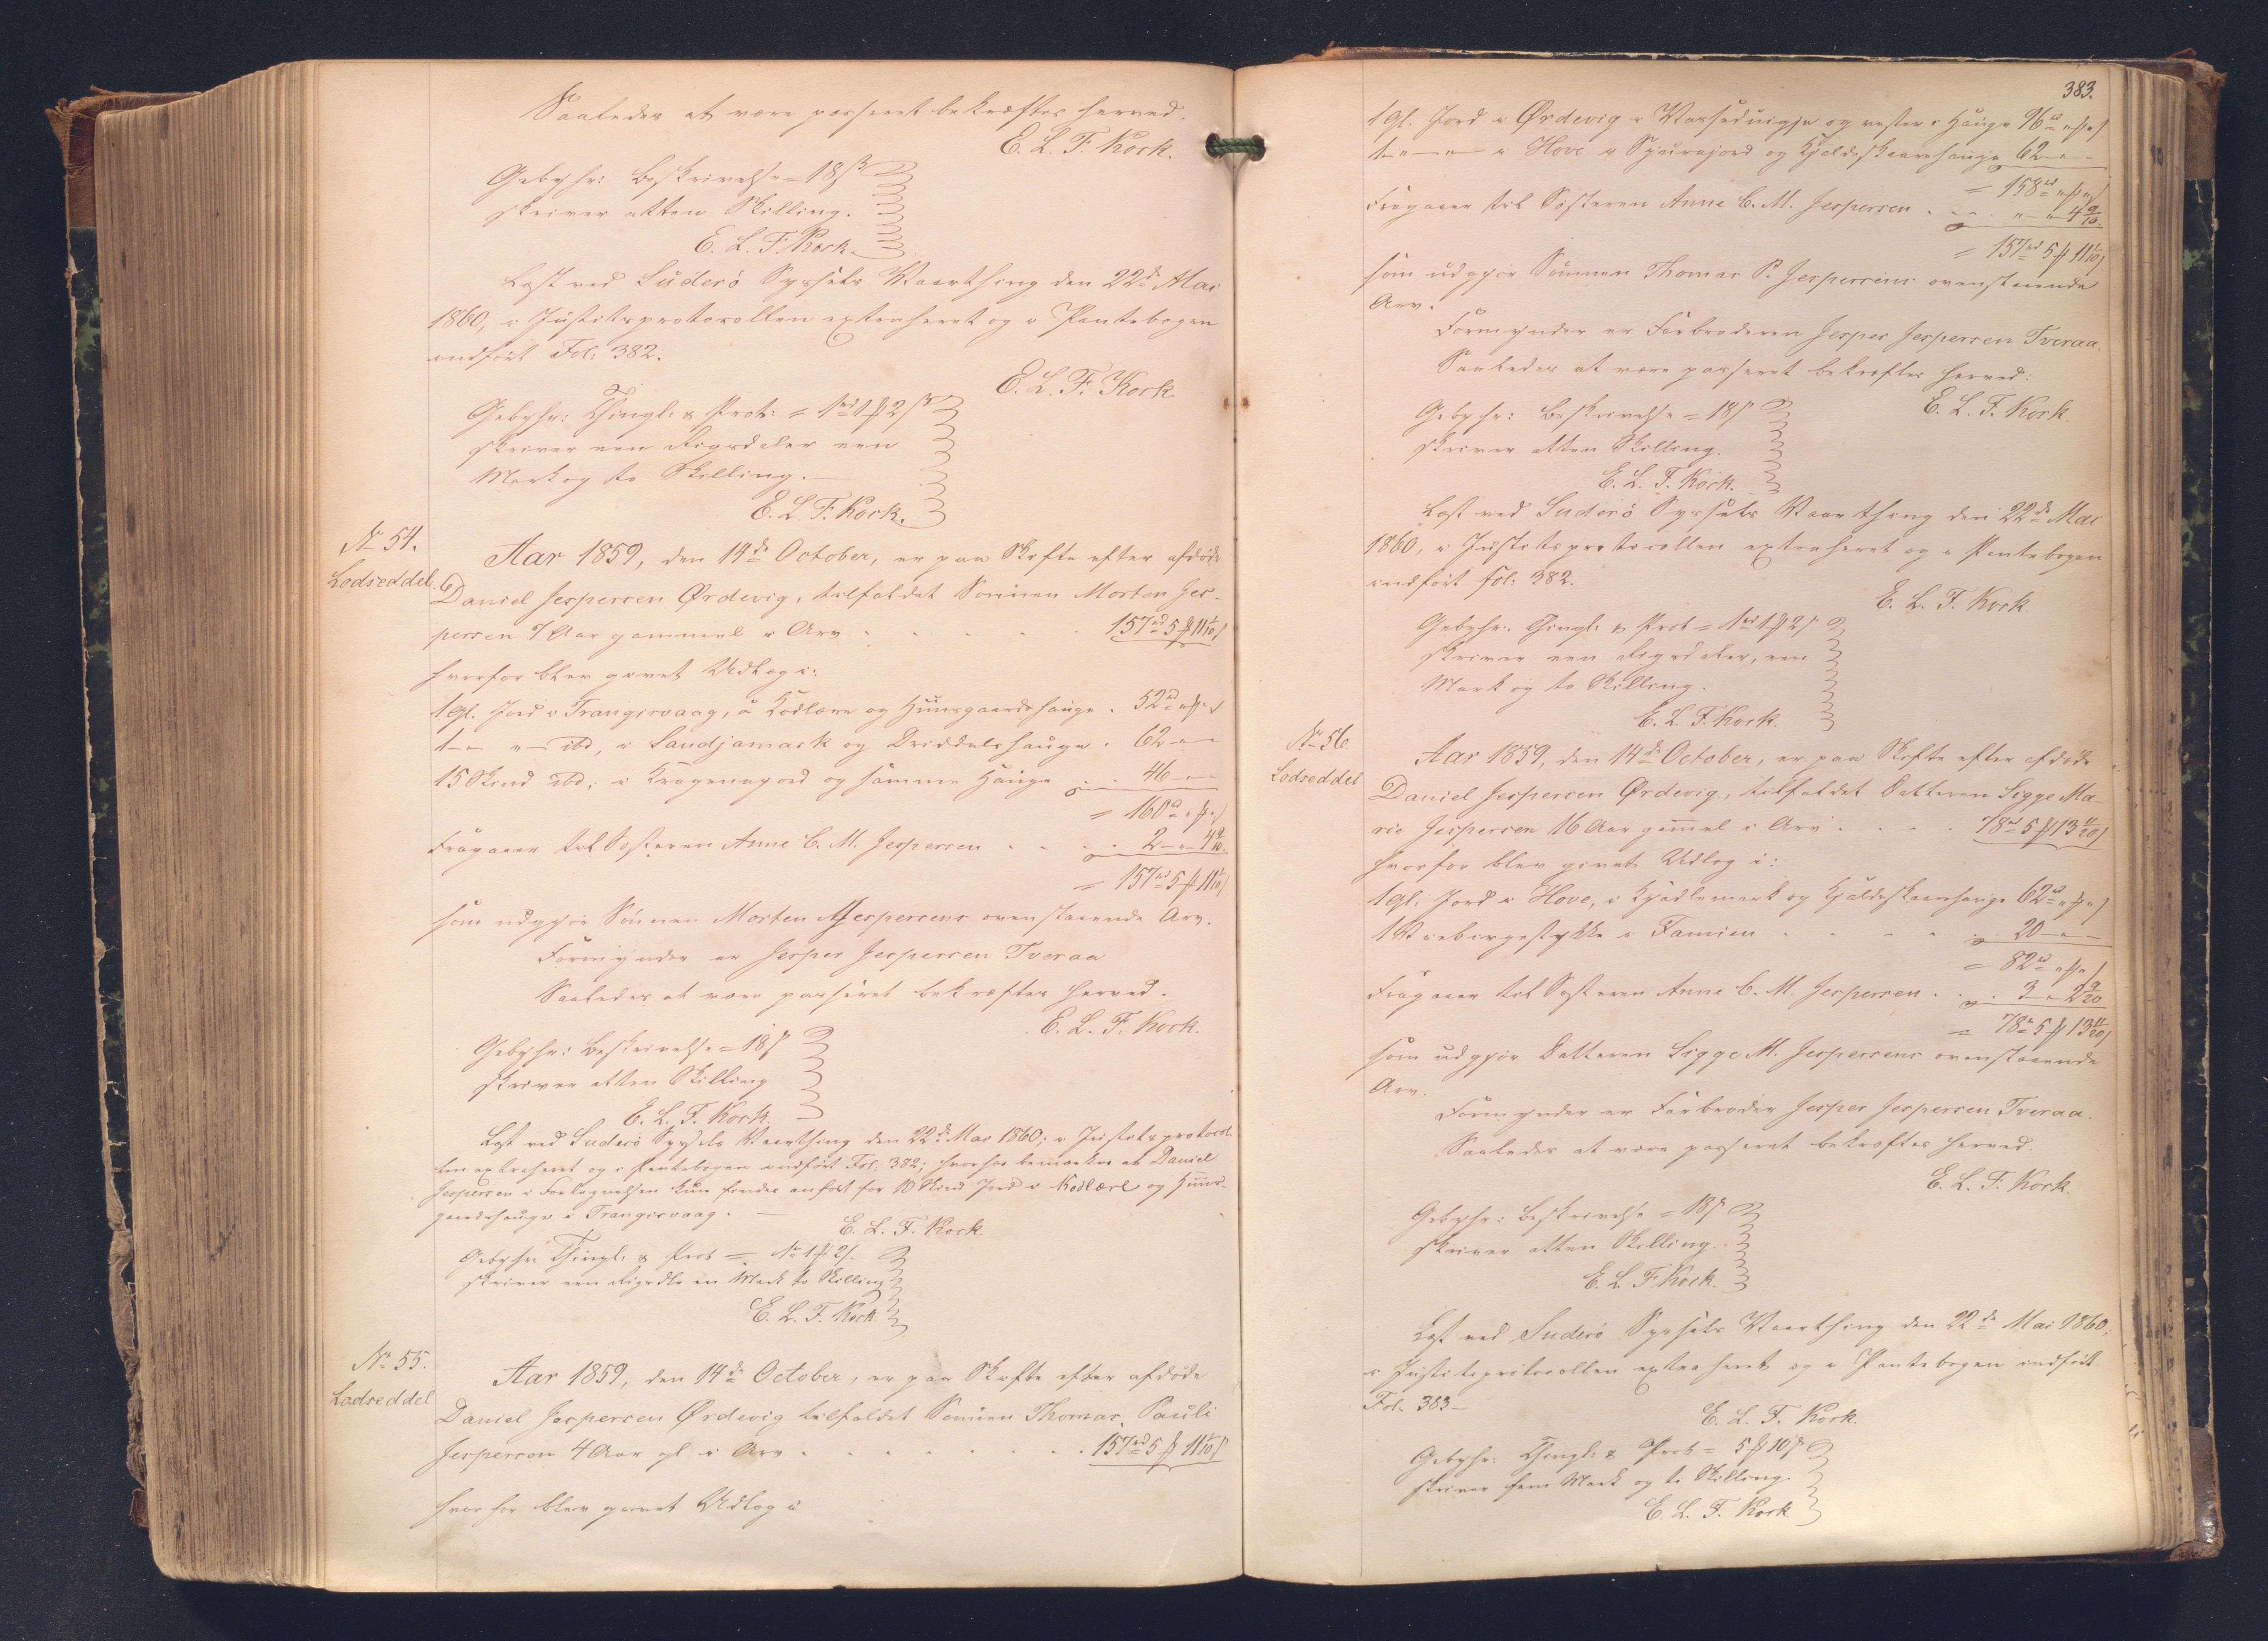 Saaledes at være passeret bekræftes herved.
E. L. F. Kock.
Gebyhr: Beskrivelse = 18 ß
skriver atten Skilling.
E. L. F. Kock.
Læst ved Suderö Syssels Vaarthing den 22de Mai
1860, i Justitsprotocollen extraheret og i Pantebogen
indfört Fol: 382.
E. L. F. Kock.
Gebyhr: Thingl: & Prot: = 1rd 1 ß 2 ß
skriver een Rigsdaler een
Mark og to Skilling.
E. L. F. Kock.
No 54.
Lodseddel.
Aar 1859, den 14de October, er paa Skifte efter afdöde
Daniel Jespersen Ørdevig, tilfaldet Sönnen Morten Jes-
persen 7 Aar gammel i Arv . . . . . 157rd 5 ß 11 1/10 ß
hvorfor blev givet Udlæg i:
1 Gl. Jord i Trangisvaag, i Kodlære og Huusgaardshauge . 52rd " "
1 — " — ibd, i Sandjamark og Driddalshauge . 62 — " —
15 Skind ibd: i Krogenesjord og samme Hauge . . 46 — " —
= 160rd " "
Fragaaer til Søsteren Anne C. M. Jespersen . . . . 2 — " — 4 9/10
= 157rd 5 ß 11 1/10 ß
som udgjör Sönnen Morten Jespersens ovenstaaende Arv.
Formynder er Jesper Jespersen Tveraa
Saaledes at være passeret bekræftes herved.
E. L. F. Kock.
Gebyhr: Beskrivelse = 18 ß
skriver atten Skilling
E. L. F. Kock.
Læst ved Suderö Syssels Vaarthing den 22de Mai 1860; i Justitsprotocol-
len extraheret og i Pantebogen indfört Fol. 382; hvorhos bemærkes at Daniel
Jespersen i Forlegnelsen kun findes anfört for 10 Skind Jord i Kodlære og Huus-
gaardshauge i Trangisvaag. —
E. L. F. Kock.
Gebyhr Thingl: & Prot = 1rd 1 ß 2 ß
skriver een Rigsdlr en Mark to Skilling
E. L. F. Kock.
No 55.
Lodseddel
Aar 1859, den 14de October, er paa Skifte efter afdöde
Daniel Jespersen Ørdevig tilfaldet Sönnen Thomas Pauli
Jespersen 4 Aar gl i Arv . . . . . . . . 157rd 5 ß 11 1/10 ß
hvorfor blev givet Udlæg i
383.
1 Gl. Jord i Ørdevig i og vester i Hauge 96rd " "
1 — " — " i Hove i Spurajord og Kjeldeskaarshauge 62 — " —
= 158rd " "
Fragaaer til Søsteren Anne C. M. Jespersen . . . . " — " 4 9/10
= 157rd 5 ß 11 1/10 ß
som udgjör Sönnen Thomas P. Jespersens ovenstaaende
Arv.
Formynder er Farbroderen Jesper Jespersen Tveraa.
Saaledes at være passeret bekræftes herved:
E. L. F. Kock.
Gebyhr: Beskrivelse = 18 ß
skriver atten Skilling.
E. L. F. Kock.
Læst ved Suderö Syssels Vaarthing den 22de Mai
1860, i Justitsprotocollen extraheret og i Pantebogen
indfört fol: 382.
E. L. F. Kock
Gebyhr. Thingl: & Prot = 1rd 1 ß 2 ß
skriver een Rigsdaler, een
Mark og to Skilling.
E. L. F. Kock.
No 56.
Lodseddel
Aar 1859, den 14de October, er paa Skifte efter afdöde
Daniel Jespersen Ørdevig., tilfaldet Datteren Sigge Ma-
rie Jespersen 16 Aar gammel i Arv . . . . 78rd 5 ß 13 11/20 ß
hvorfor blev givet Udlæg i:
1 Gl: Jord i Hove, i Kjødlemark og Kjeldeskaarshauge 62rd " "
1 Træbergestykke i Famien . . . . 20 — " —
= 82rd " "
Fragaaer til Søsteren Anne C. M. Jespersen . . . 3 — " 2 9/20
= 78rd 5 ß 13 11/20 ß
som udgjör Datteren Sigge M. Jespersens ovenstaaende
Arv.
Formynder er Farbroder Jesper Jespersen Tveraa.
Saaledes at være passeret bekræftes herved.
E. L. F. Kock.
Gebyhr: Beskrivelse = 18 ß
skriver atten Skilling.
E. L. F. Kock.
Læst ved Suderö Syssels Vaarthing den 22de Mai 1860;
i Justitsprotocollen extraheret og i Pantebogen indfört
Fol. 383 —
E. L. F. Kock.
Gebyhr. Thingl: & Prot = 5 ß 10 ß
skriver fem Mark og ti Skilling.
E. L. F. Kock